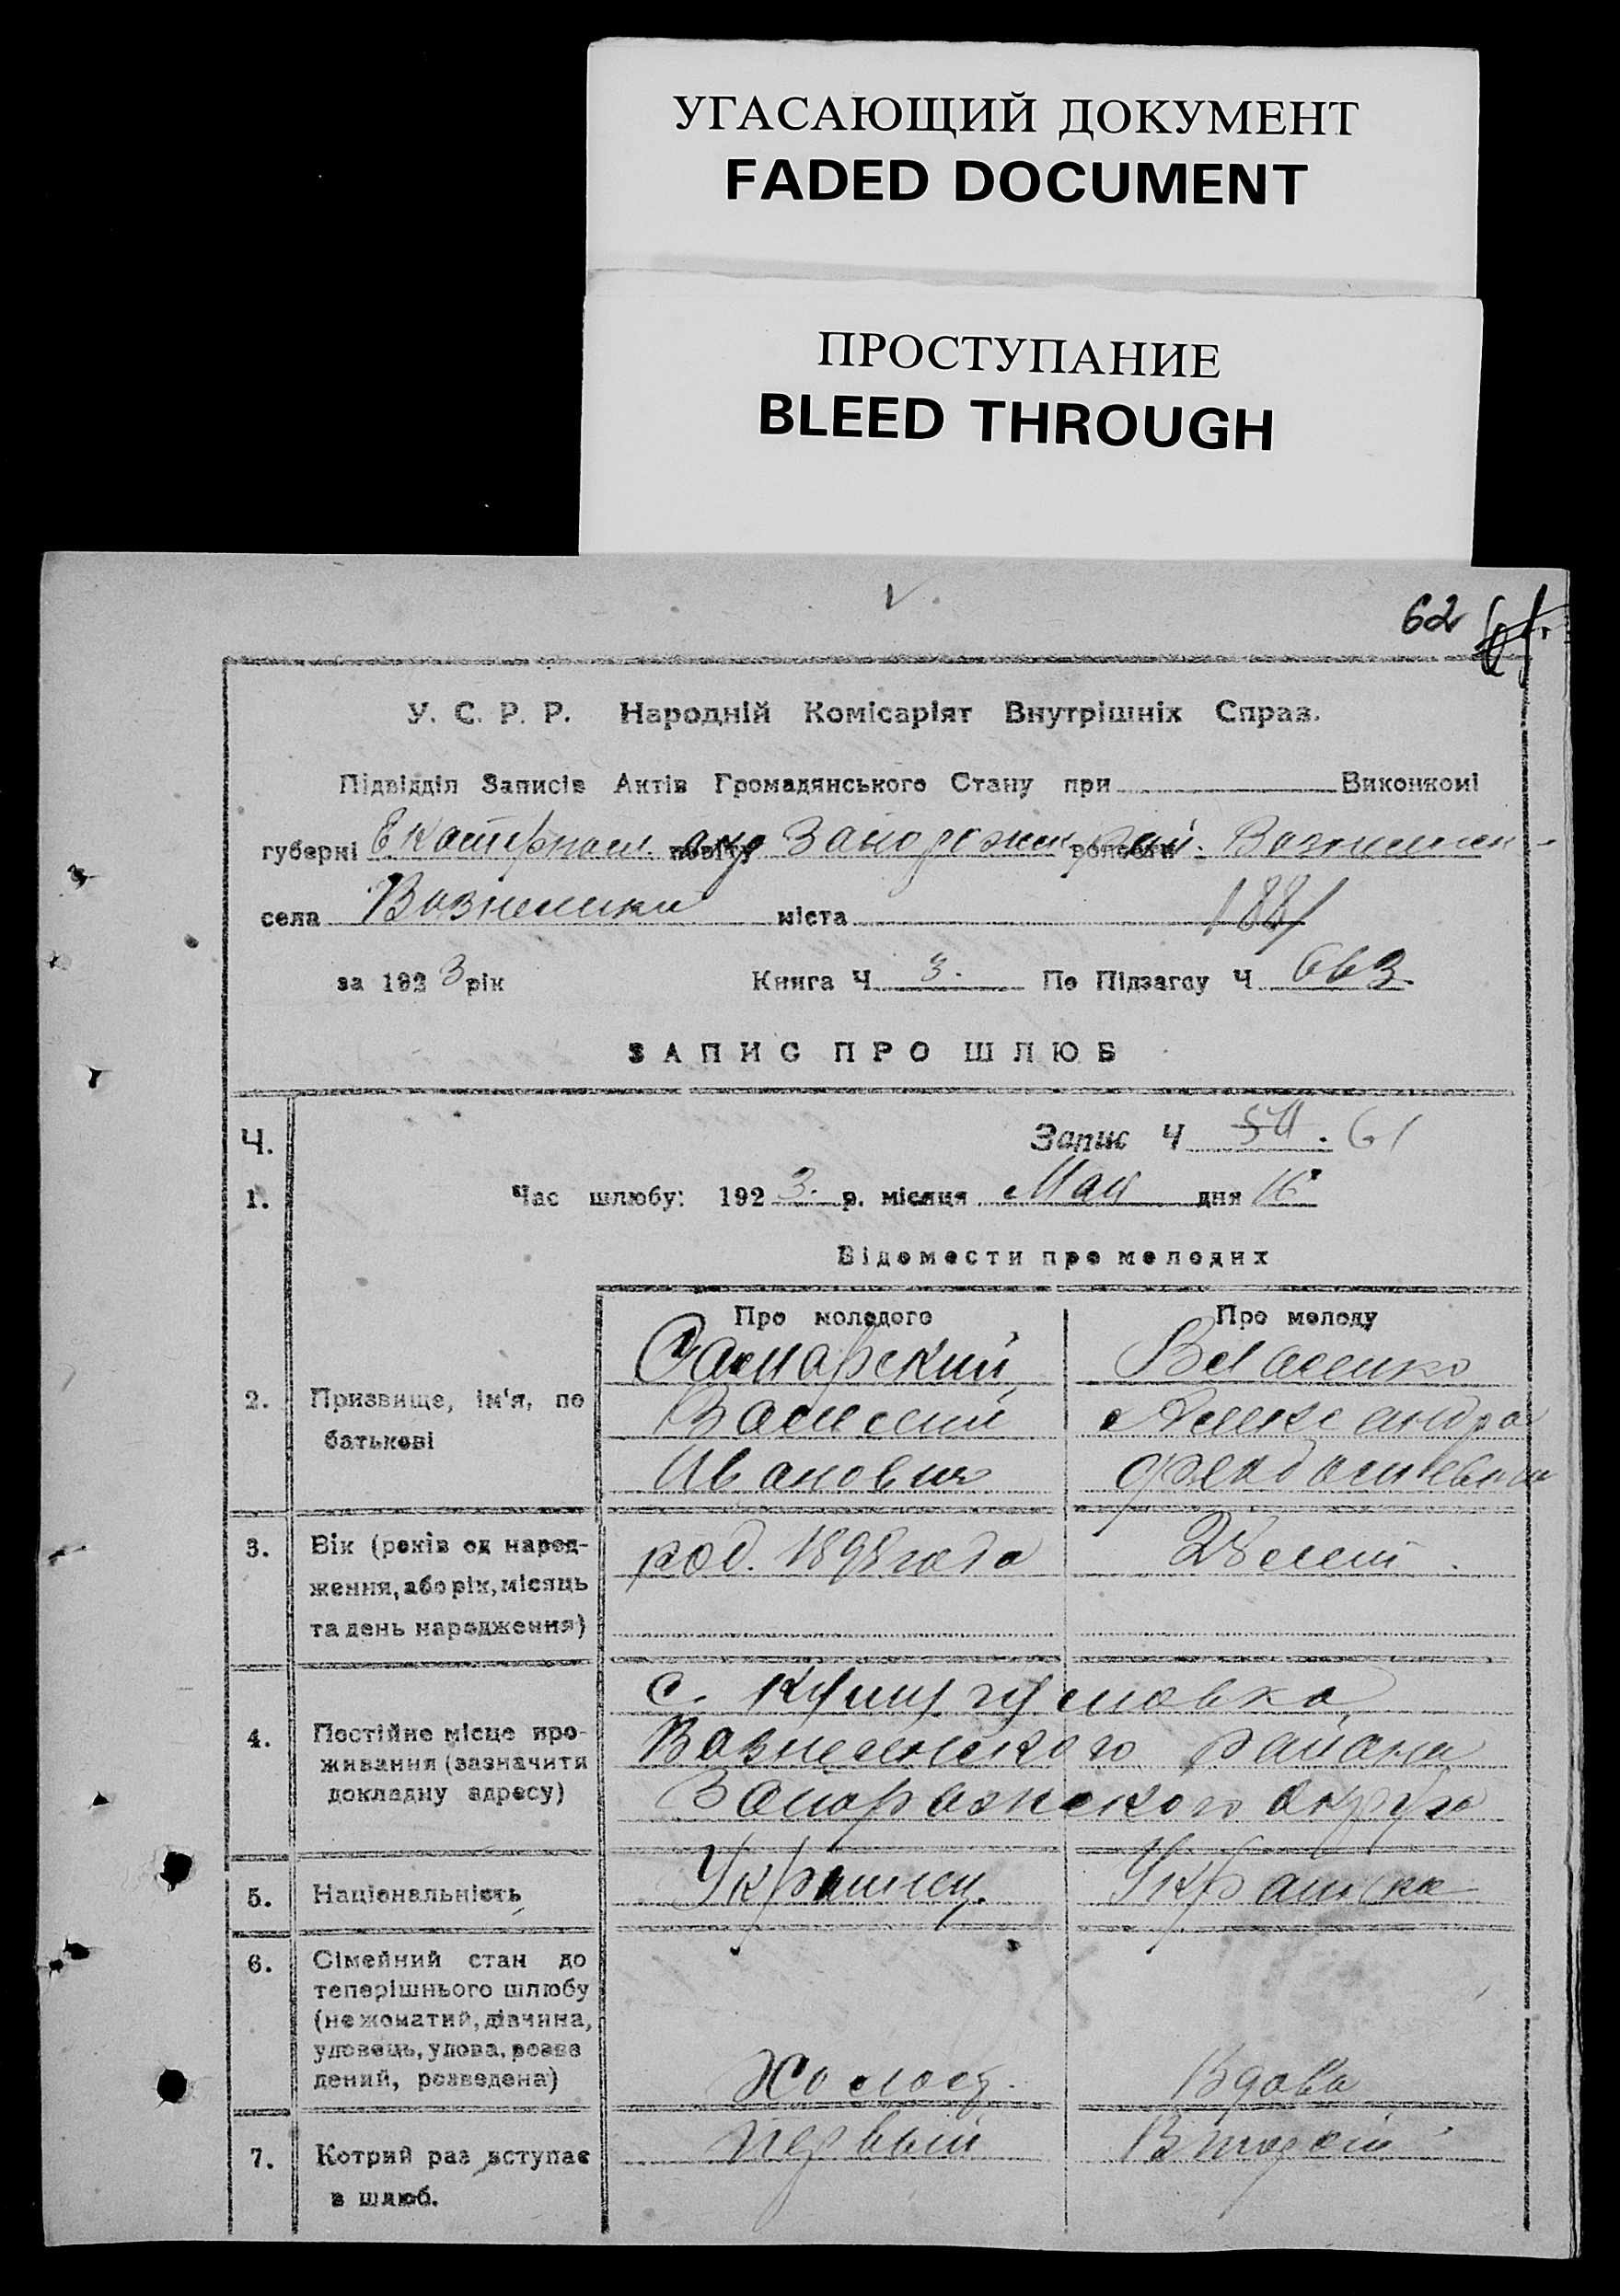 УГАСАЮЩИЙ ДОКУМЕНТ
FADED DOCUMENT
ПРОСТУПАНИЕ
BLEED THROUGH
62
У. С. Р. Р. Народній Комісаріят Внутрішніх Справ.
Підвідділ Записів Актів Громадянського Стану при Виконкомі
губерні Екатериносл. повіту окр Запорожск. волости рай. Вознесенск-
села Вознесенки міста 1881
за 1923 рік Книга Ч 3. По Підзагсу Ч 663.
ЗАПИС ПРО ШЛЮБ
Ч. Запис Ч 54. 61
1. Час шлюбу: 1923. р. місяця Мая дня 16
Відомости про молодих
Про молодого Про молоду
Самарский Власенко
2. Призвище, ім'я, по Василий Александра
батькові
Иванович Феодосиевна
3. Вік (років од народ- род. 1898 года 28 лет.
ження, або рік, місяць
та день народження)
с. Кушугумовка
4. Постійне місце про- Вознесенского района
живання (зазначити
докладну адресу) Запорожского округа
5. Національність Украинец. Украинка
6. Сімейний стан до
теперішнього шлюбу
(нежонатий, дівчина,
удовець, удова, розве
дений, розведена) Холост. Вдова
7. Котрий раз вступає Первый Второй
в шлюб.